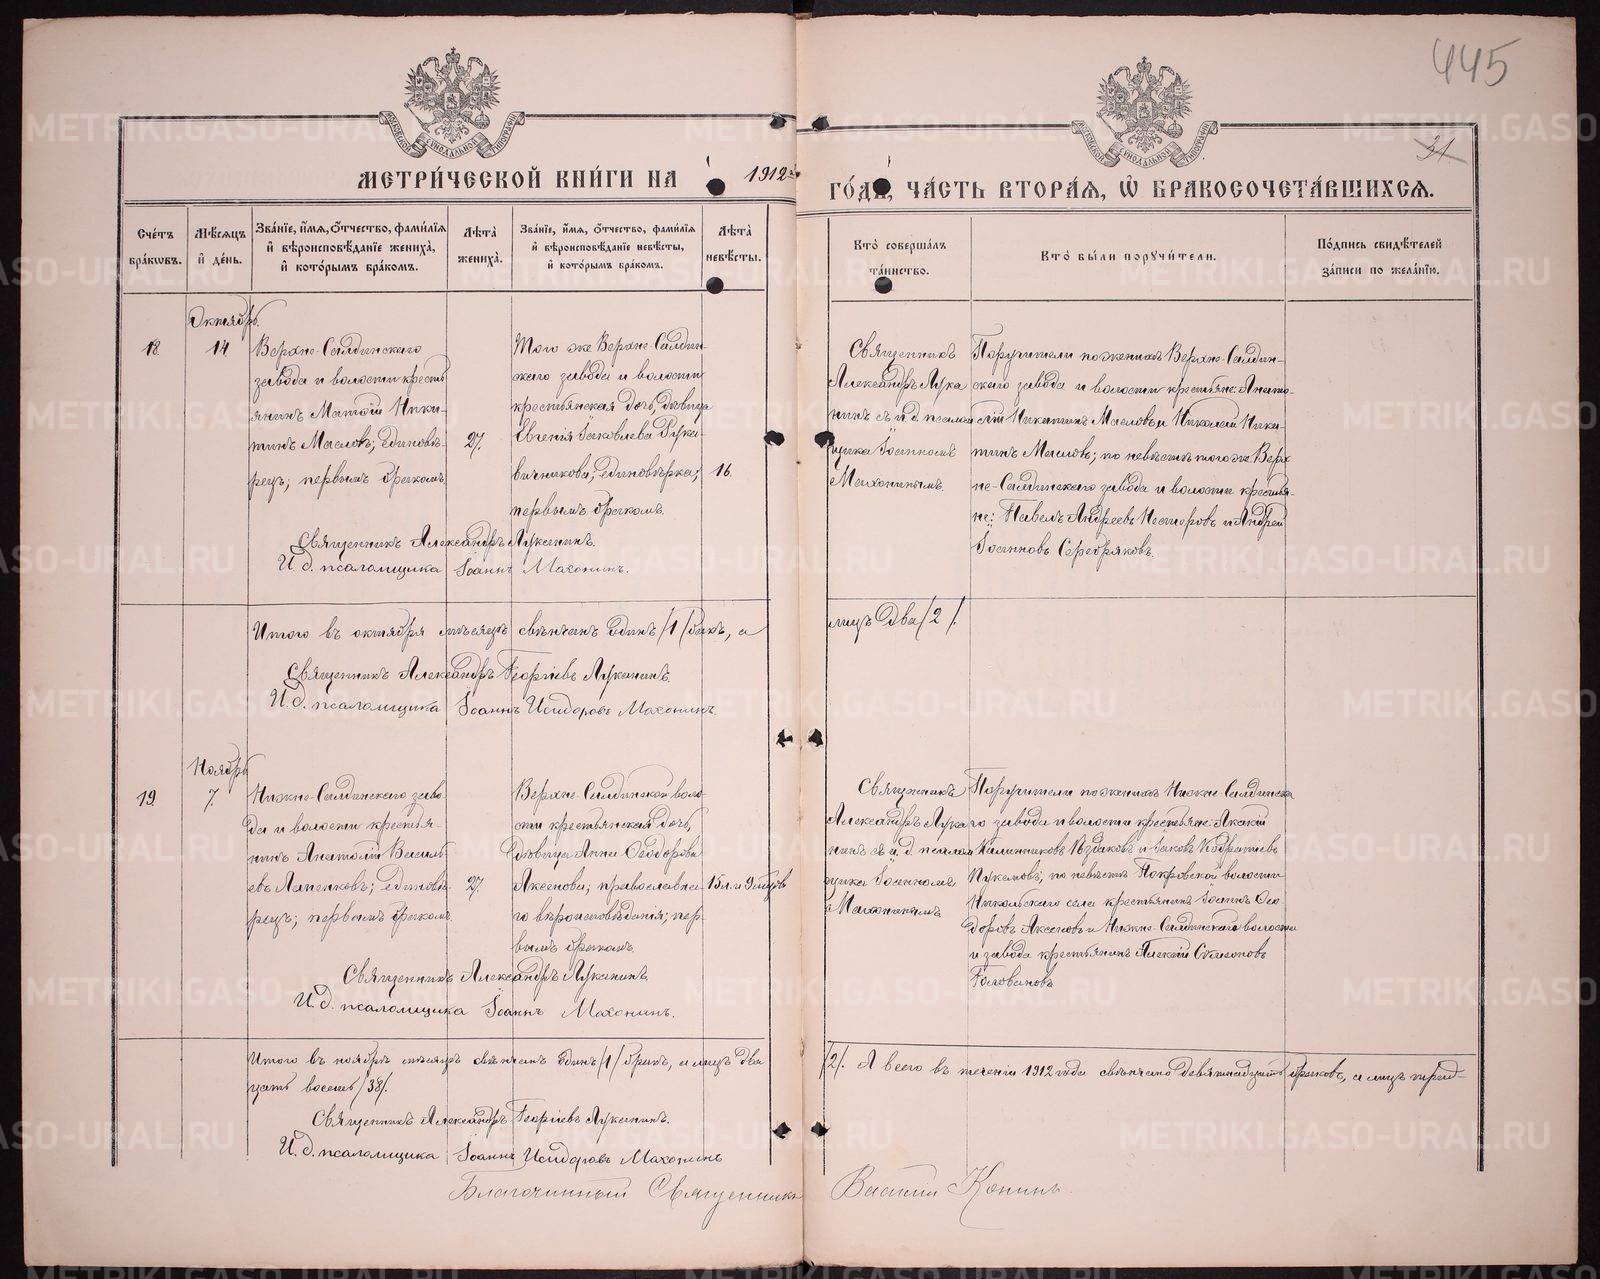 445
31
МОСКОВСКОЙ СѴНОДАЛЬНОЙ ТИПОГРАФІИ
МОСКОВСКОЙ СѴНОДАЛЬНОЙ ТИПОГРАФІИ
МЕТРИ́ЧЕСКОЙ КНИ́ГИ НА 1912 ГО́ДЪ, ЧА́СТЬ ВТОРА́Я, Ѽ БРАКОСОЧЕТА́ВШИХСЯ.
Сче́тъ бра́кѡвъ.
Мѣ́сяцъ и҆ де́нь.
Зва́нїе, и҆́мя, ѻ҆́тчество, фами́лїя и҆ вѣроисповѣ́данїе жениха̀, и҆ кото́рымъ бра́комъ.
Лѣ́та̀ жениха̀.
Зва́нїе, и҆́мя, ѻ҆́тчество, фами́лїя и҆ вѣроисповѣ́данїе невѣ́сты, и҆ кото́рымъ бра́комъ.
Лѣ́та̀ невѣ́сты.
Кто̀ соверша́лъ та́инство.
Кто̀ бы́ли порꙋчи́тели.
По́дпись свидѣ́телей за́писи по жела́нїю.
Октябрь.
18.
14
Верхне-Салдинскаго
завода и волости кресть
янинъ Матѳій Ники-
тинъ Масловъ; единовѣ-
рецъ; первымъ бракомъ.
27.
Того же Верхне-Салдин
скаго завода и волости
крестьянская дочь, дѣвица
Евгенія Іаковлева Рука-
вичникова; единовѣрка;
первымъ бракомъ.
16.
Священникъ
Александръ Лука
нинъ съ и.д. псалом
щика Іоанномъ
Махонинымъ.
Поручители по женихѣ Верхне-Салдин-
скаго завода и волости крестьяне: Анато-
лій Никитинъ Масловъ и Николай Ники-
тинъ Масловъ; по невѣстѣ того же Верх
не-Салдинскаго завода и волости крестья-
не: Павелъ Андреевъ Нестеровъ и Андрей
Іоанновъ Серебряковъ.
Священникъ Александръ Луканинъ.
И.д. псаломщика Іоаннъ Махонинъ.
Итого въ октябрѣ мѣсяцѣ свѣнчанъ одинъ /1/ бракъ, а
лицъ два /2/.
Священникъ Александръ Георгіевъ Луканинъ.
И.д. псаломщика Іоаннъ Исидоровъ Махонинъ.
Ноябрь
19.
7.
Нижне-Салдинскаго заво-
да и волости крестья-
нинъ Анатолій Василь
евъ Лапенковъ; единовѣ-
рецъ; первымъ бракомъ.
27.
Верхне-Салдинской воло-
сти крестьянская дочь,
дѣвица Анна Ѳеодорова
Аксенова; православна-
го вѣроисповѣданія; пер-
вымъ бракомъ.
15 л. и 9 мѣсяцов
Священникъ
Александръ Лука
нинъ съ и.д. псалом
щика Іоанномъ
Махонинымъ
Поручители по женихѣ Нижне-Салдинска
го завода и волости крестьяне: Акакій
Калинниковъ и Іаковъ Кодратіевъ
по невѣстѣ Покровской волости
Никольскаго села крестьянинъ Іоаннъ Ѳео
доровъ Аксеновъ и Нижне-Салдинской волости
и завода крестьянинъ Алексій Симеоновъ
Головановъ
Священникъ Александръ Луканинъ.
И.д. псаломщика Іоаннъ Махонинъ.
Итого въ ноябрѣ мѣсяцѣ свѣнчанъ одинъ /1/ бракъ, а лицъ два
/2/. А всего въ теченіи 1912 года свѣнчано девятнадцать браковъ, а лицъ трид-
цать восемь /38/.
Священникъ Александръ Георгіевъ Луканинъ.
И.д. псаломщика Іоаннъ Исидоровъ Махонинъ
Благочинный Священникъ Василій Конинъ.
METRIKI.GASO-URAL.RU